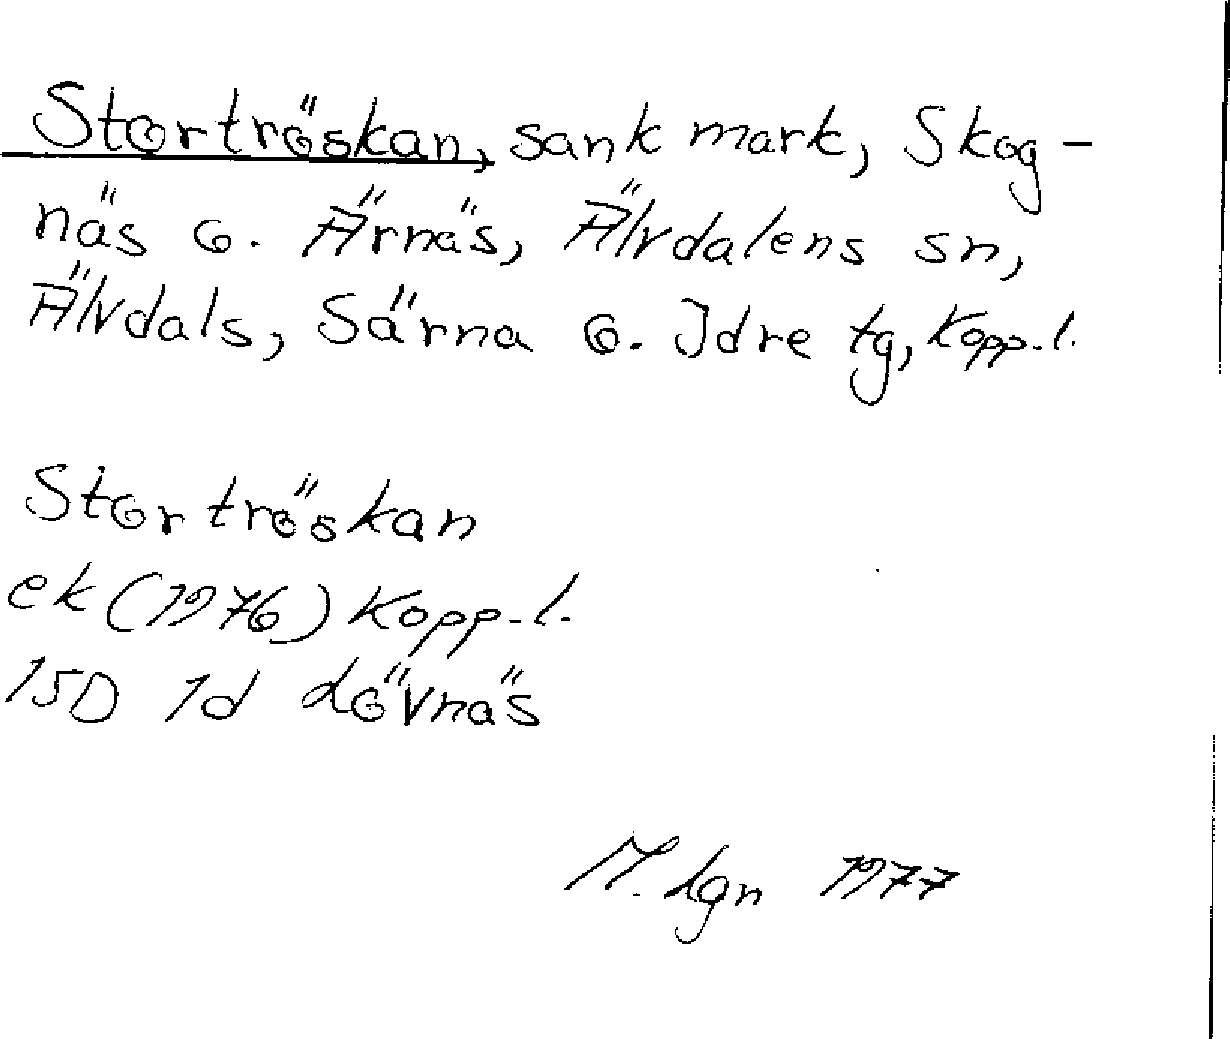 Stortröskan, sank mark, Skog-
näs o. Ärnäs, Älvdalens sn,
Älvdals, Särna o. Idre tg, Kopp.l.
Stortröskan
ek (1976) Kopp.l.
15D 1d Lövnäs
M. Lgn 1977